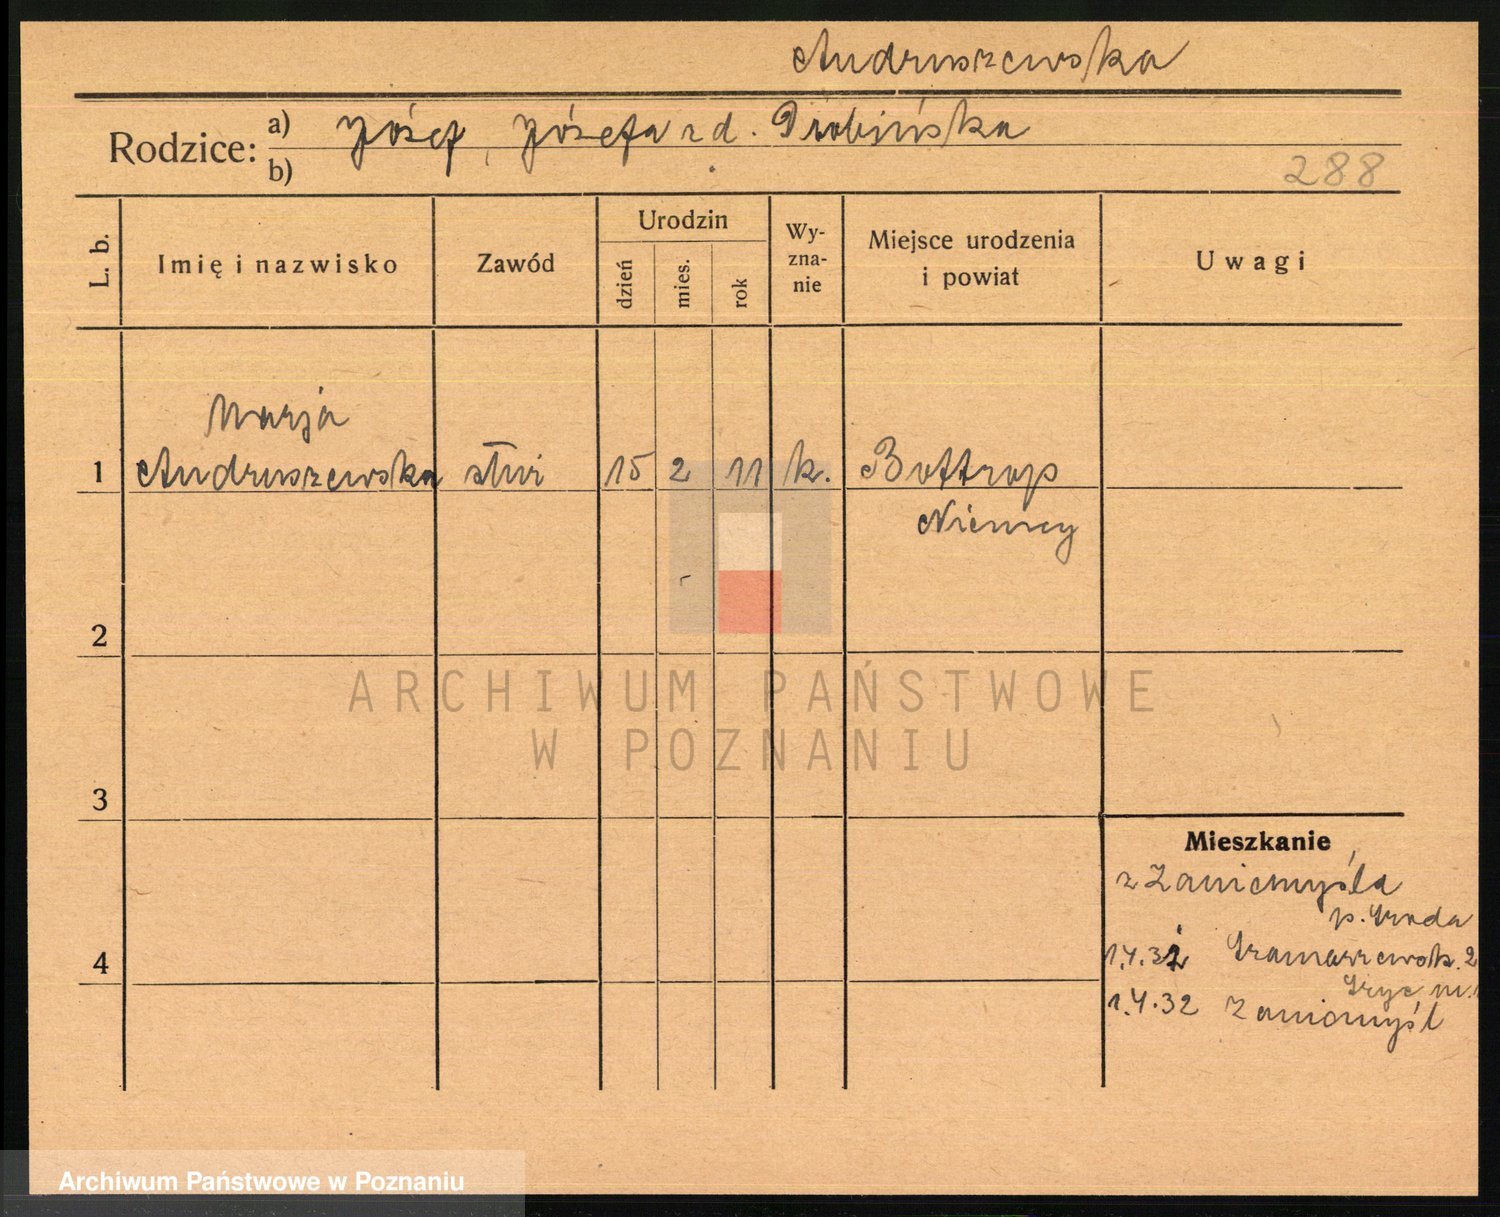 Andruszewska
Rodzice: a) Józef, Józefa z d. Drobińska
b)
288
L. b.
Imię i nazwisko
Zawód
Urodzin
dzień
mies.
rok
Wy-
zna-
nie
Miejsce urodzenia
i powiat
Uwagi
Marja
1 Andruszewska służ 15 2 11 k. Bottrop
Niemcy
2
ARCHIWUM PAŃSTWOWE
W POZNANIU
3
Mieszkanie
z Zaniemyśla
p. Środa
4
1.4.32
1.4.32 Zaniemyśl
Archiwum Państwowe w Poznaniu